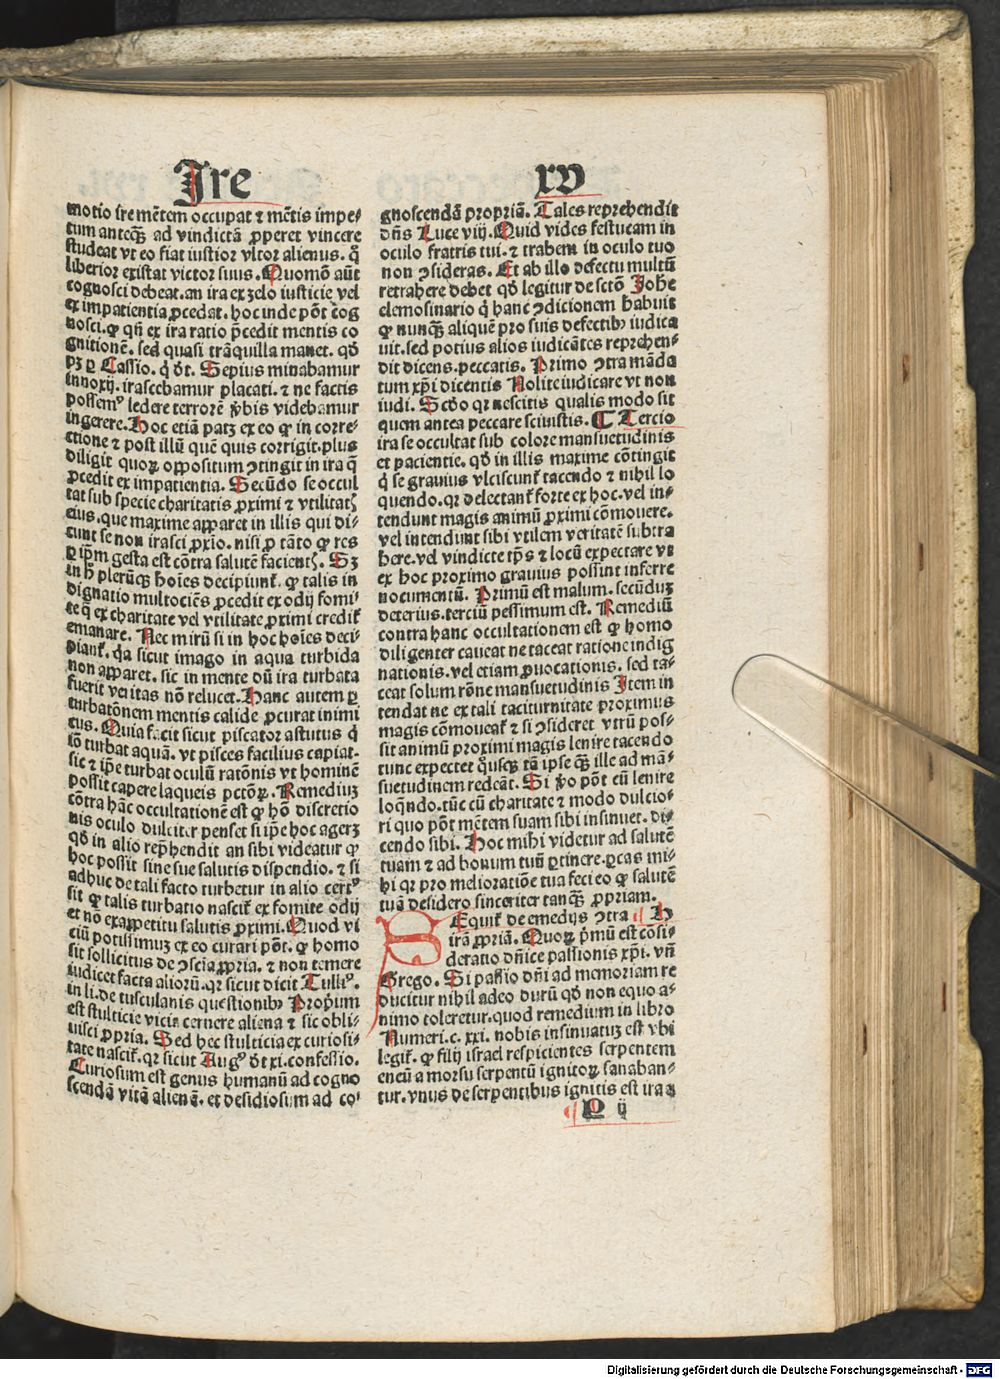 Ire
xv
motio ire mẽtem occupat ⁊ mẽtis impe⸗
tum anteqȝ ad vindictã ꝓperet vincere
studeat vt eo fiat iustior vltor alienus. q̃
liberior existat victor suus. Quomõ aũt
cognosci debeat. an ira ex zelo iusticie vel
ex impatientia ꝓcedat. hoc inde põt cog
nosci. ꝙ qñ ex ira ratio p̃cedit mentis co
gnitionẽ. sed quasi trãquilla manet. qð
pȝ ꝑ Cassio. q̃ ðt. Sepius minabamur
innoxij. irascebamur placati. ⁊ ne factis
possemꝰ ledere terrorẽ v̾bis videbamur
ingerere. Hoc etiã patȝ ex eo ꝙ in corre⸗
ctione ⁊ post illũ quẽ quis corrigit. plus
diligit quoꝝ oppositum ↄtingit in ira q̃
ꝓcedit ex impatientia. Secũdo se occul
tat sub specie charitatis ꝓximi ⁊ vtilitatꝭ
eius. que maxime apparet in illis qui di⸗
cunt se non irasci ꝓxio. nisi ꝓ tãto ꝙ res
ꝑ ip̃m gesta est cõtra salutẽ facientꝭ. Sȝ
in h̾ plerũqȝ hoĩes decipiunt̾. ꝙ talis in
dignatio multociẽs ꝓcedit ex odij fomi⸗
te q̃ ex charitate vel vtilitate ꝓximi credit̾
emanare. Nec mirũ si in hoc hoĩes deci⸗
piant̾. q̃a sicut imago in aqua turbida
non apparet. sic in mente dũ ira turbata
fuerit veritas nõ relucet. Hanc autem ꝑ
turbatõnem mentis calide ꝓcurat inimi
cus. Quia facit sicut piscator astutus q̃
iõ turbat aquã. vt pisces facilius capiat.
sic ⁊ ip̃e turbat oculũ ratõnis vt hominẽ
possit capere laqueis pctõꝝ. Remediuȝ
cõtra hãc occultationẽ est ꝙ hõ discretio
nis oculo dulciter penset si ip̃e hoc agerȝ
qð in alio rep̃hendit an sibi videatur ꝙ
hoc possit sine sue salutis dispendio. ⁊ si
adhuc de tali facto turbetur in alio certꝰ
sit ꝙ talis turbatio nascit̾ ex fomite odij
et nõ ex appetitu salutis ꝓximi. Quod vi
ciũ potissimuȝ ex eo curari põt. ꝙ homo
sit sollicitus de ↄscĩa ꝓpria. ⁊ non temere
iudicet facta alioꝝ. qr sicut dicit Tulliꝰ.
in li. de tusculanis questionibꝰ Propriũ
est stulticie vicia cernere aliena ⁊ sic obli⸗
uisci ꝓpria. Sed hec stulticia ex curiosi⸗
tate nascit̾. qr sicut Augꝰ ðt xi. confessio.
Curiosum est genus humanũ ad cogno
scendã vitã alienã. et desidiosum ad co⸗
gnoscendã propriã. Tales reprehendit
dñs Luce viij. Quid vides festucam in
oculo fratris tui. ⁊ trabem in oculo tuo
non ↄsideras. Et ab illo defectu multũ
retrahere debet qð legitur de sctõ Johẽ
elemosinario q̃ hanc ↄdicionem habuit
ꝙ nunqȝ aliquẽ pro suis defectibꝰ iudica
uit. sed potius alios iudicãtes reprehen⸗
dit dicens. peccatis. Primo ↄtra mãda
tum xp̃i dicentis Nolite iudicare vt non
iudi. Scðo qr nescitis qualis modo sit
quem antea peccare sciuistis. ¶ Tercio
ira se occultat sub colore mansuetudinis
et pacientie. qð in illis maxime cõtingit
q̃ se grauius vlciscunt̾ tacendo ⁊ nihil lo
quendo. qr delectant̾ forte ex hoc. vel in⸗
tendunt magis animũ ꝓximi cõmouere.
vel intendunt sibi vtilem veritatẽ subtra
here. vel vindicte tp̃s ⁊ locũ expectare vt
ex hoc proximo grauius possint inferre
nocumentũ. Primũ est malum. secũduȝ
deterius. terciũ pessimum est. Remediũ
contra hanc occultationem est ꝙ homo
diligenter caueat ne taceat ratione indig
nationis. vel etiam ꝓuocationis. sed ta⸗
ceat solum rõne mansuetudinis Item in
tendat ne ex tali taciturnitate proximus
magis cõmoueat̾ ⁊ si ↄsideret vtrũ pos⸗
sit animũ proximi magis lenire tacendo
tunc expectet q̃usqȝ tã ipse qȝ ille ad mã⸗
suetudinem redeãt. Si v̾o põt eũ lenire
loq̃ndo. tũc cũ charitate ⁊ modo dulcio⸗
ri quo põt mẽtem suam sibi insinuet. di⸗
cendo sibi. Hoc mihi videtur ad salutẽ
tuam ⁊ ad bonum tuũ ꝑtinere. ꝑcas mi⸗
hi qr pro melioratiõe tua feci eo ꝙ salutẽ
tuã desidero sinceriter tanqȝ ꝓpriam.
SEquit̾ de emedijs ↄtra ¶ H
irã ꝓpriã. Quoꝝ p̃mũ est cõsi⸗
deratio dñice passionis xp̃i. vñ
Grego. Si passio dñi ad memoriam re
ducitur nihil adeo durũ qð non equo a⸗
nimo toleretur. quod remedium in libro
Numeri. c. xxi. nobis insinuatuȝ est vbi
legit̾. ꝙ filij israel respicientes serpentem
eneũ a morsu serpentũ ignitoꝝ sanaban⸗
tur. vnus de serpentibus ignitis est ira a
¶ P ij
Digitalisierung gefördert durch die Deutsche Forschungsgemeinschaft - DFG